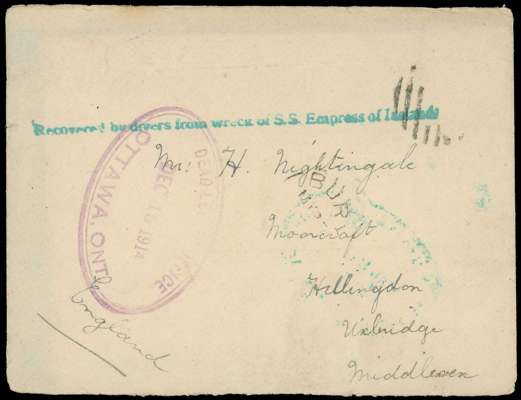 Recovered by divers from wreck of S.S. Empress of Ireland
OTTAWA, ONT.
DEAD LE
OFFICE
DEC 15 1914
Mr. H. Nightingale
Moorcroft
Hillingdon
Uxbridge
Middlesex
England